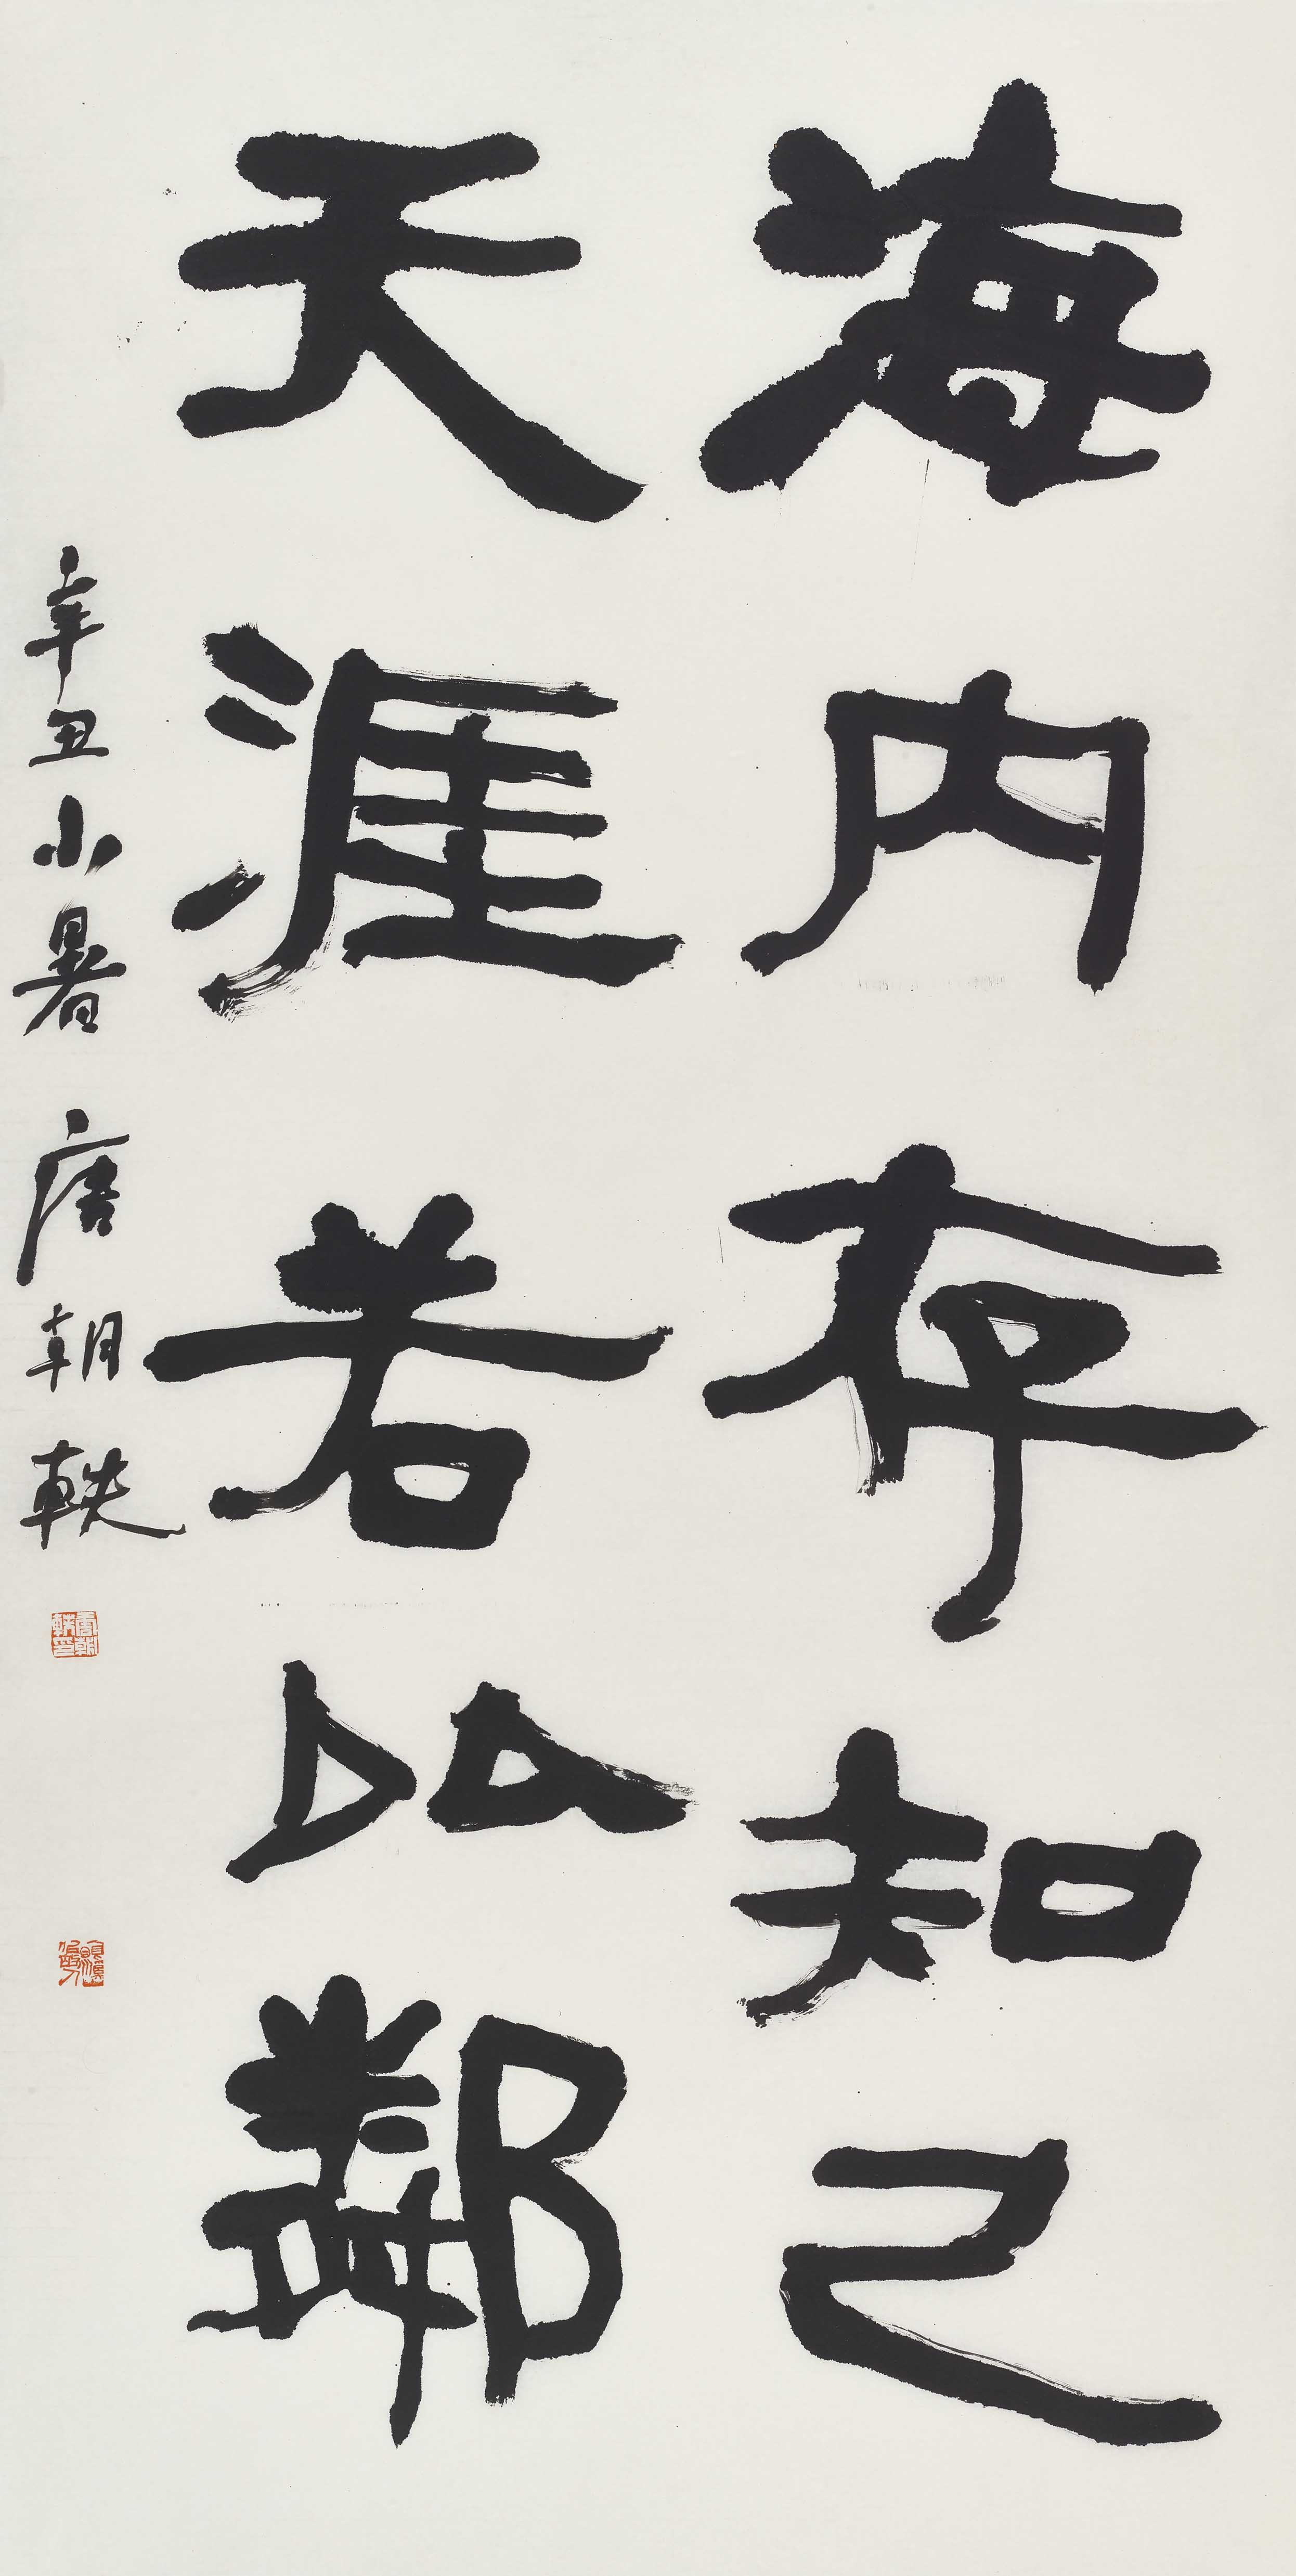 海内存知己
天涯若比鄰
辛丑小暑 唐朝軼